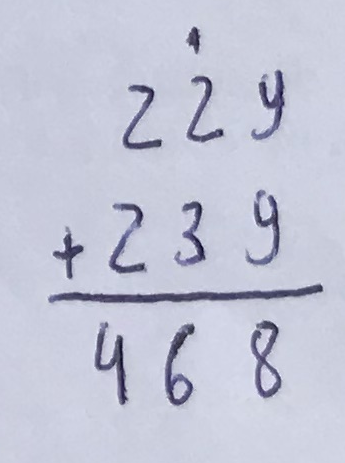 229
+ 239
468